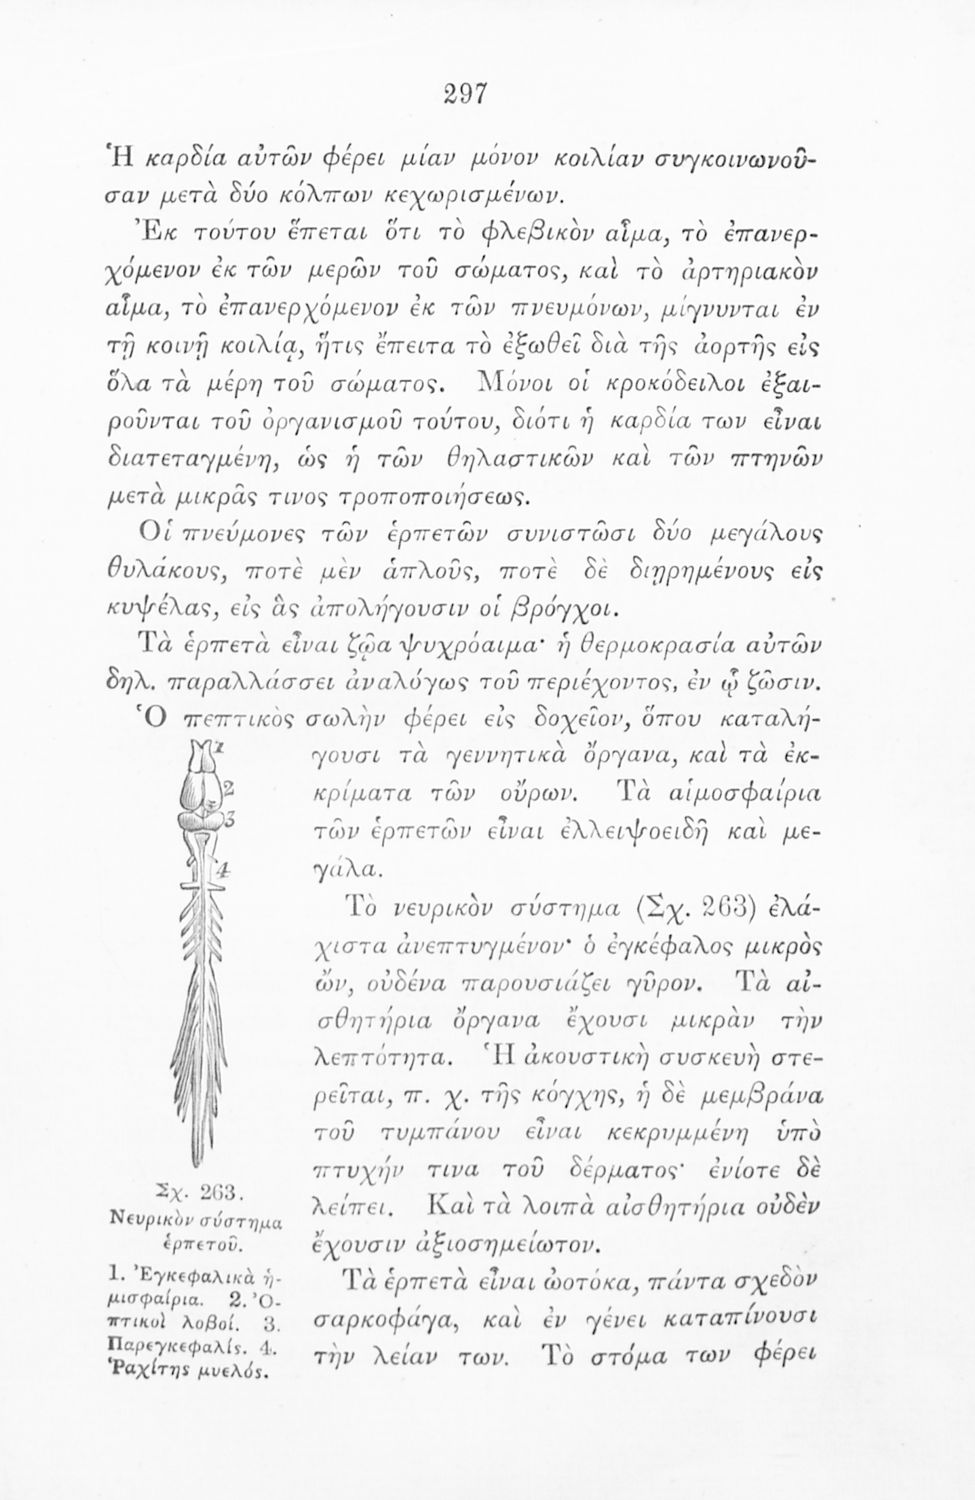 297
Ἡ καρδία αὐτῶν φέρει μίαν μόνον κοιλίαν συγκοινωνοῦ-
σαν μετὰ δύο κόλπων κεχωρισμένων.
Ἐκ τούτου ἕπεται ὅτι τὸ φλεβικὸν αἷμα, τὸ ἐπανερ-
χόμενον ἐκ τῶν μερῶν τοῦ σώματος, καὶ τὸ ἀρτηριακὸν
αἷμα, τὸ ἐπανερχόμενον ἐκ τῶν πνευμόνων, μίγνυνται ἐν
τῇ κοινῇ κοιλίᾳ, ἥτις ἔπειτα τὸ ἐξωθεῖ διὰ τῆς ἀορτῆς εἰς
ὅλα τὰ μέρη τοῦ σώματος. Μόνοι οἱ κροκόδειλοι ἐξαι-
ροῦνται τοῦ ὀργανισμοῦ τούτου, διότι ἡ καρδία των εἶναι
διατεταγμένη, ὡς ἡ τῶν θηλαστικῶν καὶ τῶν πτηνῶν
μετὰ μικρᾶς τινος τροποποιήσεως.
Οἱ πνεύμονες τῶν ἑρπετῶν συνιστῶσι δύο μεγάλους
θυλάκους, ποτὲ μὲν ἁπλοῦς, ποτὲ δὲ διῃρημένους εἰς
κυψέλας, εἰς ἃς ἀπολήγουσιν οἱ βρόγχοι.
Τὰ ἑρπετὰ εἶναι ζῷα ψυχρόαιμα· ἡ θερμοκρασία αὐτῶν
δηλ. παραλλάσσει ἀναλόγως τοῦ περιέχοντος, ἐν ᾧ ζῶσιν.
Ὁ πεπτικὸς σωλὴν φέρει εἰς δοχεῖον, ὅπου καταλή-
γουσι τὰ γεννητικὰ ὄργανα, καὶ τὰ ἐκ-
κρίματα τῶν οὔρων. Τὰ αἱμοσφαίρια
τῶν ἑρπετῶν εἶναι ἐλλειψοειδῆ καὶ με-
γάλα.
Τὸ νευρικὸν σύστημα (Σχ. 263) ἐλά-
χιστα ἀνεπτυγμένον· ὁ ἐγκέφαλος μικρὸς
ὤν, οὐδένα παρουσιάζει γῦρον. Τὰ αἰ-
σθητήρια ὄργανα ἔχουσι μικρὰν τὴν
λεπτότητα. Ἡ ἀκουστικὴ συσκευὴ στε-
ρεῖται, π. χ. τῆς κόγχης, ἡ δὲ μεμβράνα
τοῦ τυμπάνου εἶναι κεκρυμμένη ὑπὸ
πτυχήν τινα τοῦ δέρματος· ἐνίοτε δὲ
λείπει. Καὶ τὰ λοιπὰ αἰσθητήρια οὐδὲν
ἔχουσιν ἀξιοσημείωτον.
Τὰ ἑρπετὰ εἶναι ὠοτόκα, πάντα σχεδὸν
σαρκοφάγα, καὶ ἐν γένει καταπίνουσι
τὴν λείαν των. Τὸ στόμα των φέρει
1
2
3
4
Σχ. 263.
Νευρικὸν σύστημα
ἑρπετοῦ.
1. Ἐγκεφαλικὰ ἡ-
μισφαίρια. 2. Ὀ-
πτικοὶ λοβοί. 3.
Παρεγκεφαλίς. 4.
Ῥαχίτης μυελός.